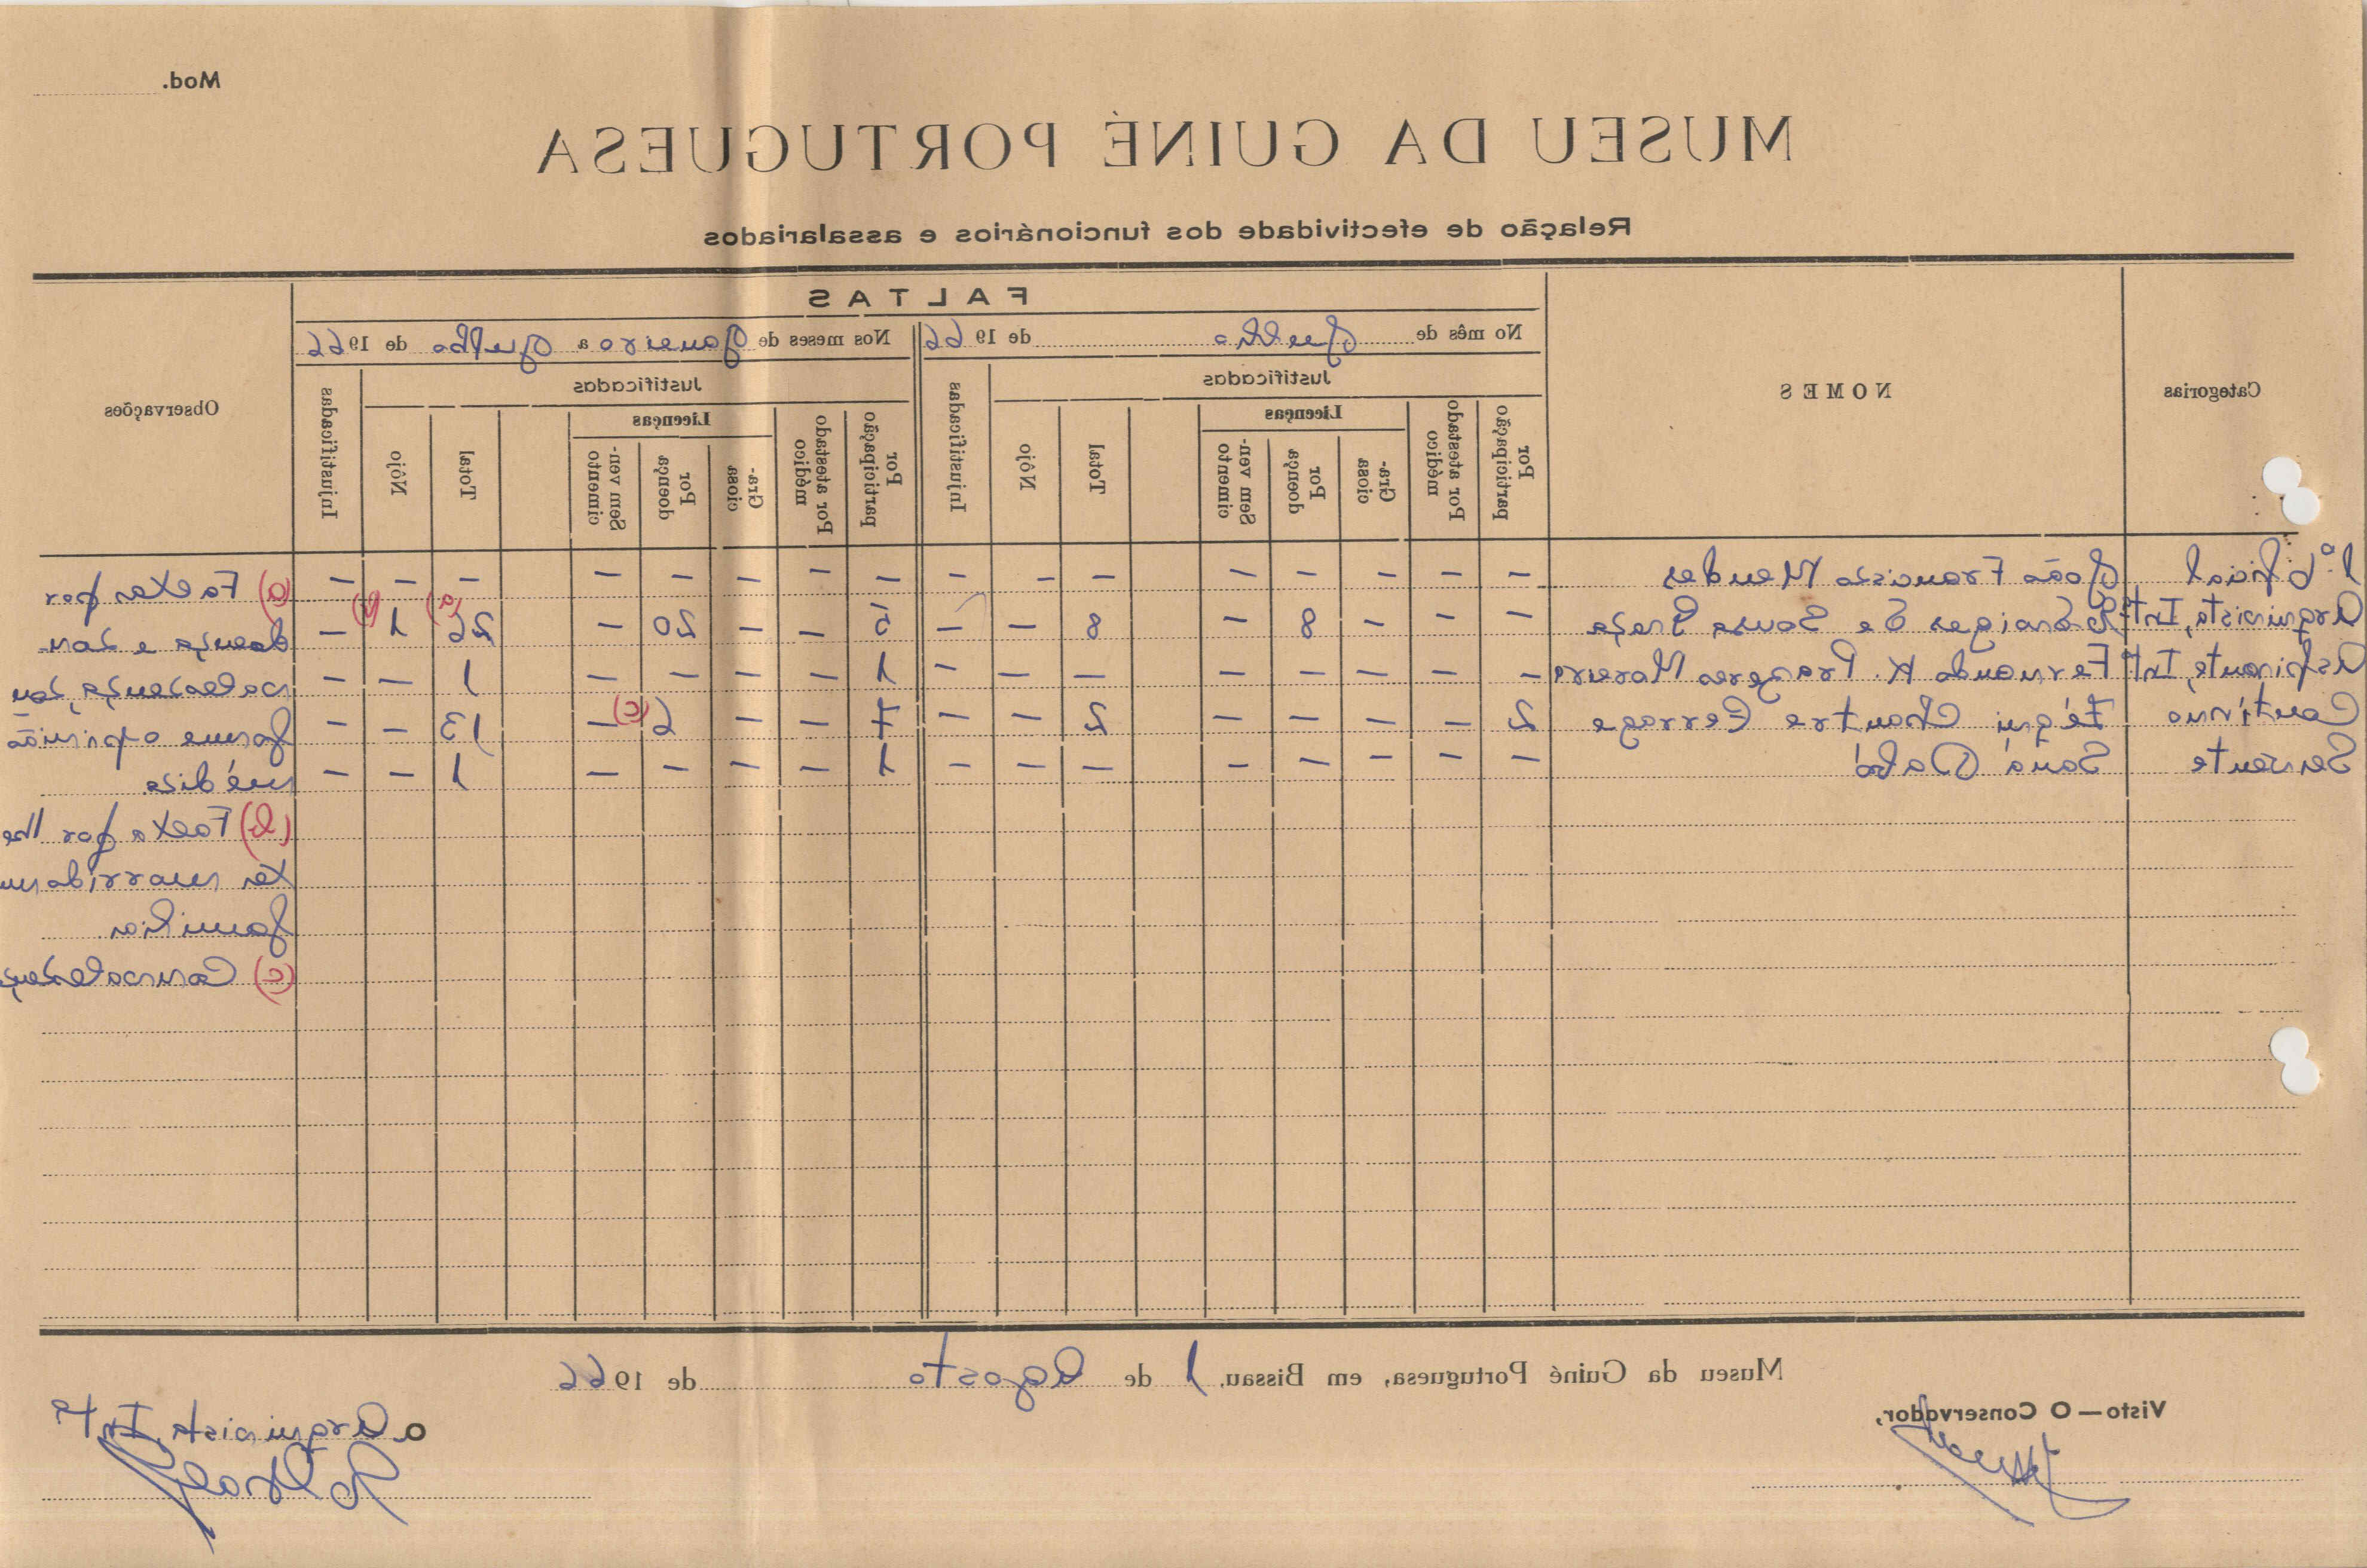 Mod.
MUSEU DA GUINÉ PORTUGUESA
Relação de efectividade dos funcionários e assalariados
Categorias NOMES FALTAS Observações
No mês de Julho de 1966 Nos meses de Janeiro a Julho de 1966
Justificadas Injustificadas Justificadas Injustificadas
Por participação Por atestado médico Licenças Total Nôjo Por participação Por atestado médico Licenças Total Nôjo
Gra- ciosa Por doença Sem ven- cimento Gra- ciosa Por doença Sem ven- cimento
1.º oficial João Francisco Mendes – – – – – – – – – – – – – – – – (a) Faltas por
Arquivista, Intº de Sousa – – – 8 – 8 – – 5 – – 20 – 26 (a) 1 (b) – doença e con-
Aspirante, Intº Fernando K. Moreira – – – – – – – – 1 – – – – 1 – – valescença, con
Contínuo 2 – – – – 2 – – 7 – – 6 (c) – 13 – – forme opinião
Servente Saná Dabó – – – – – – – – 1 – – – – 1 – – médica
(b) Falta por lhe
ter morrido um
familiar
(c) Convalescenç
Museu da Guiné Portuguesa, em Bissau, 1 de Agosto de 1966
Visto — O Conservador,
O Arquivista Intº